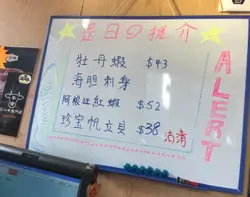 是日の推介
牡丹蝦 $43
海胆刺身
阿根廷紅蝦 $52
珍宝帆立貝 $38 清清
ALERT